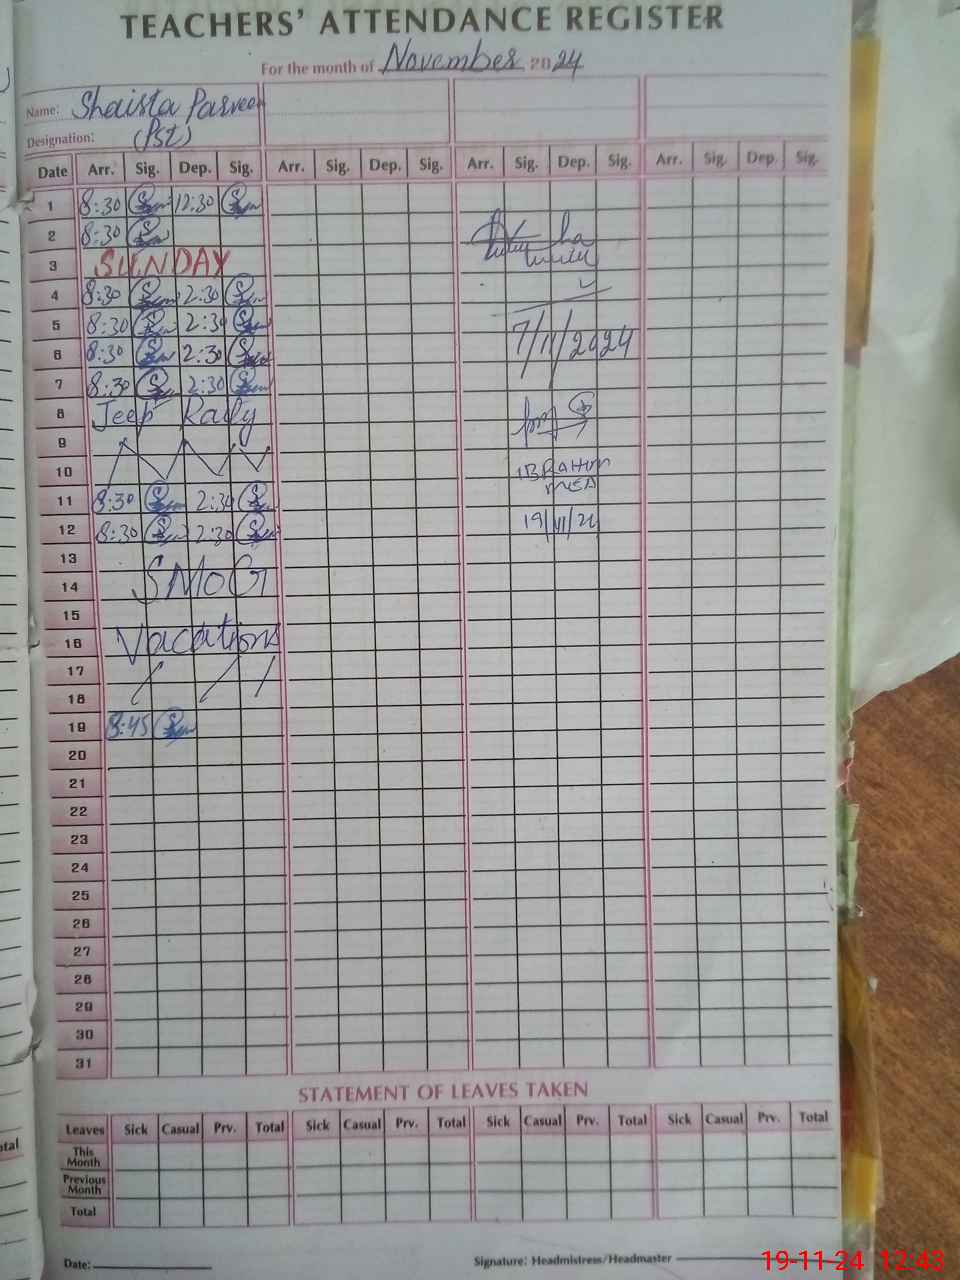 TEACHERS' ATTENDANCE REGISTER
For the month of November 2024
Name: Shaista Parveen
Designation: (Pst)
Date Arr. Sig. Dep. Sig. Arr. Sig. Dep. Sig. Arr. Sig. Dep. Sig. Arr. Sig. Dep. Sig.
1 8:30 12:30
2 8:30
3 SUNDAY
4 8:30 2:30
5 8:30 2:30
6 8:30 2:30 7/11/2024
7 8:30 2:30
8 Jeep Rally
9
10 IBRAHIM
MEA
11 8:30 2:30
12 8:30 2:30 19/11/24
13
14 SMOG
15
16 Vacations
17
18
19 8:45
20
21
22
23
24
25
26
27
28
29
30
31
STATEMENT OF LEAVES TAKEN
Leaves Sick Casual Prv. Total Sick Casual Prv. Total Sick Casual Prv. Total Sick Casual Prv. Total
This Month
Previous Month
Total
Date:
Signature: Headmistress/Headmaster
19-11-24 12:43